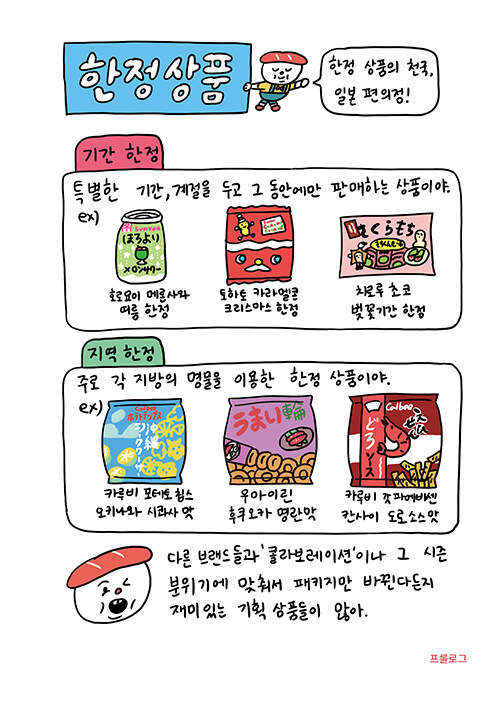 한정상품
한정 상품의 천국,
일본 편의점!
기간 한정
특별한 기간, 계절을 두고 그 동안에만 판매하는 상품이야.
ex)
Suntory
ほろより
メロンサワー
さくらもち
호로요이 메론사와
여름 한정
토하토 카라멜콘
크리스마스 한정
치로루 초코
벚꽃기간 한정
지역 한정
주로 각 지방의 명물을 이용한 한정 상품이야.
ex)
Calbee
ポテトチップス
沖縄
シークワーサー
うまい輪
Calbee
どろソース
카루비 포테토 칩스
오키나와 시콰사 맛
우마이린
후쿠오카 명란맛
카루비 갓파에비센
칸사이 도로소스맛
다른 브랜드들과 '콜라보레이션'이나 그 시즌
분위기에 맞춰서 패키지만 바뀐다든지
재미있는 기획 상품들이 많아.
프롤로그